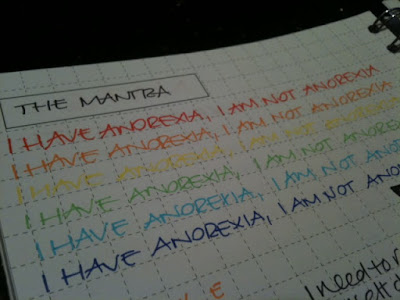 THE MANTRA
I HAVE ANOREXIA, I AM NOT ANOREXIA
I HAVE ANOREXIA, I AM NOT ANOREXIA
I HAVE ANOREXIA, I AM NOT ANOREXIA
I HAVE ANOREXIA, I AM NOT ANOREX
I HAVE ANOREXIA, I AM NOT ANO
I HAVE ANOREXIA, I AM NOT ANO
I need to